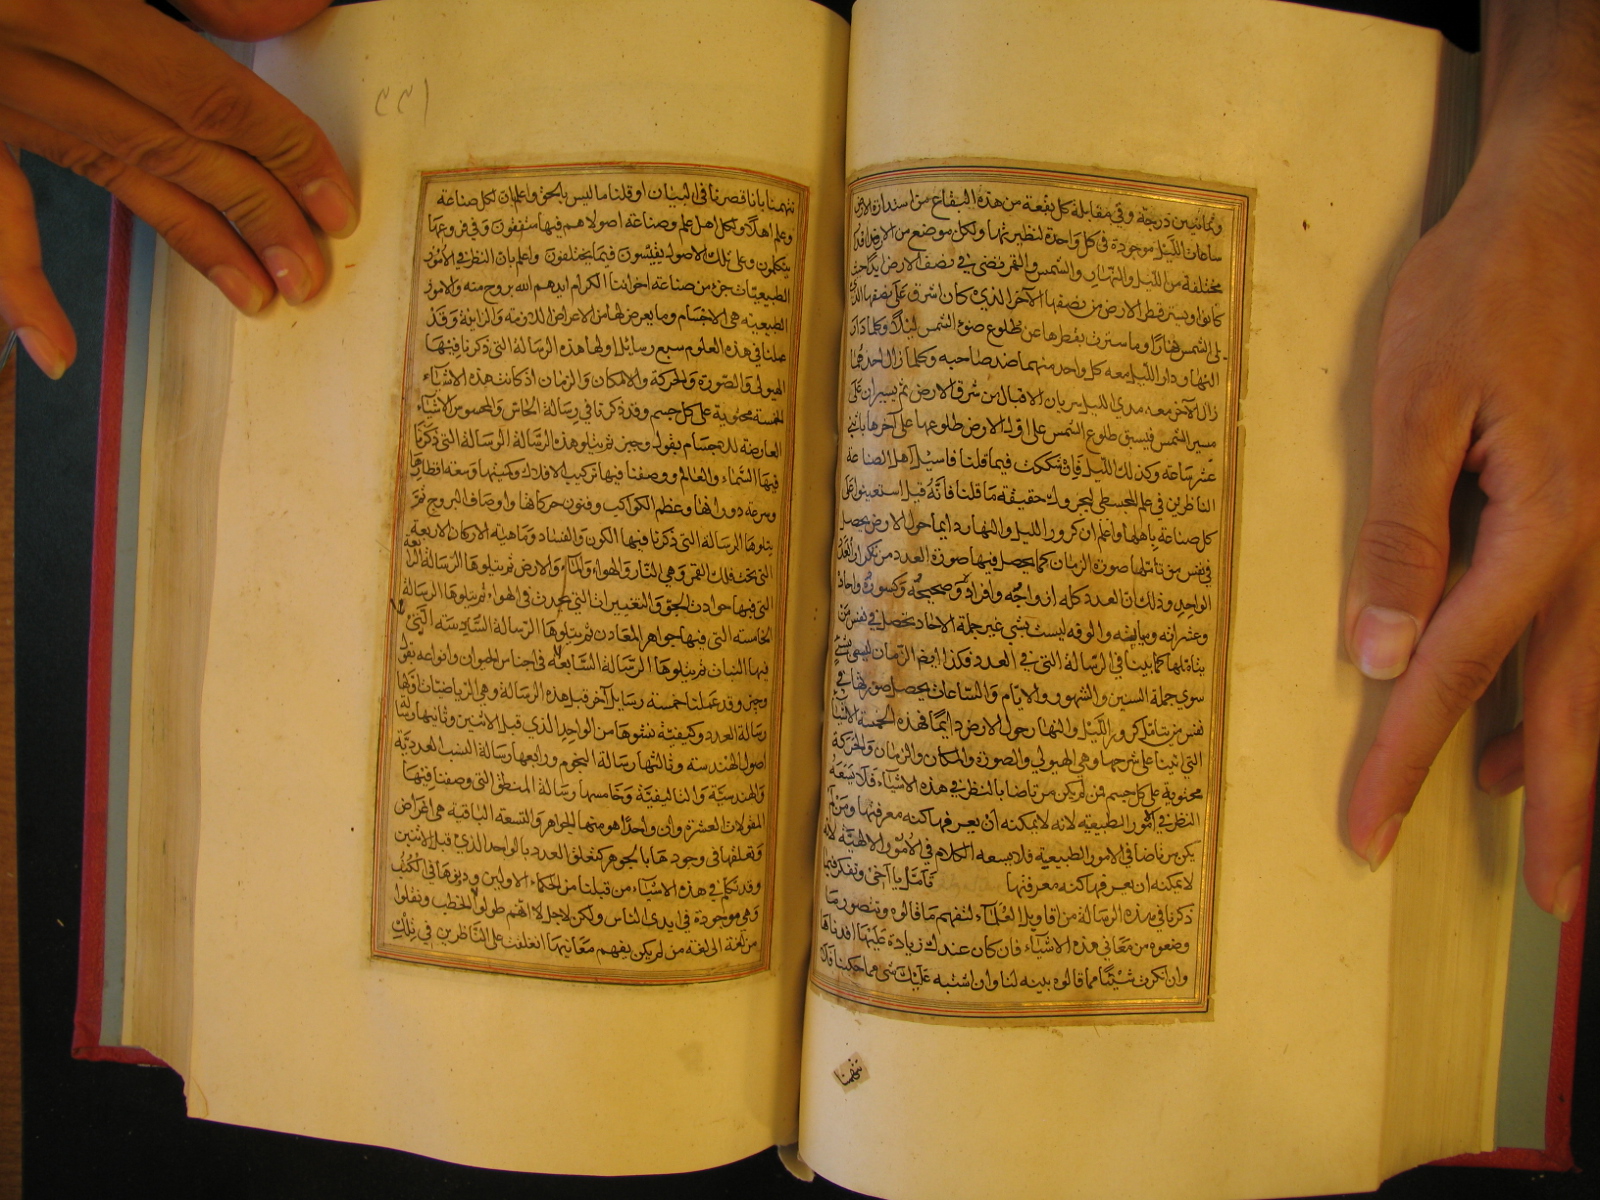 وثمانين درجة وفي مقابلة كل بقعة من هذه البقاع من استدارة الارض
ساعات الليل موجودة في كل واحدة لنظيرتها ولكل موضع من الارض اقدار
مختلفة من الليل والنهار والشمس والقمر تضئ في نصف الارض بدا حيث
كانوا ويستر قطر الارض من نصفها الآخر الذي كان اشرق على نصفها الذي
يلى الشمس نهارا وما سترت بقطرها عن طلوع ضوء الشمس ليلا وكلما دار
النهار دار الليل معه كل واحد منهما ضد صاحبه وكلما زال احدهما
زال الآخر معه مدى الليل سريان الاقبال من شرق الارض ثم يسيران على
مسير الشمس فيسبق طلوع الشمس على اول الارض طلوعها على آخرها باثني
عشر ساعة وكذلك الليل فان شككت فيما قلنا فاسئل اهل الصناعة
الناظرين في علم المجسطي ليخبروك حقيقة ما قلنا فانه قيل استعينوا على
كل صناعة باهلها واعلم ان كرور الليل والنهار دايما حول الارض يحصل
في نفس من تاملها صورة الزمان كما يحصل فيها صورة العدد من تكرار العدد
الواحد وذلك ان العدد كله ازواجه وافراده وصحيحه وكسوره واحاده
وعشراته ومياته والوفه ليست بشي غير جملة الاحاد تحصل في نفس من
يتاملها كما بينا في الرسالة التي في العدد فكذا ايضا الزمان ليس بشئ
سوى جملة السنين والشهور والايام والساعات يحصل صورتها في
نفس من يتامل كرور الليل والنهار حول الارض دايما فهذه الخمسة الاشياء
التي اتينا على شرحها وهي الهيولي والصورة والمكان والزمان والحركة
محتوية على كل جسم فمن لم يكن مرتاضا بالنظر في هذه الاشياء فلا يسعه
النظر في الامور الطبيعية لانه لا يمكنه ان يعرفها كنه معرفتها ومن لم
يكن مرتاضا في الامور الطبيعية فلا يسعه الكلام في الامور الالهية لانه
لا يمكنه ان يعرفها كنه معرفتها فتامل يا اخي وتفكر فيما
ذكرنا في هذه الرسالة من اقاويل العلماء لتفهم ما قالوه وتتصور ما
وضعوه من معاني هذه الاشياء فان كان عندك زيادة عليها افدناها
وان انكرت شيئا مما قالوه بينه لنا وان اشتبه عليك شي مما حكينا فلا
تتهمنا
١٣٣
تتهمنا بانا قصرنا في البيان او قلنا ما ليس بالحق واعلم ان لكل صناعة
وعلم اهلا ولكل اهل علم وصناعة اصولا هم فيها متفقون وفي فروعها
يتكلمون وعلى تلك الاصول يقيسون فيما يختلفون واعلم بان النظر في الامور
الطبيعيات جزء من صناعة اخواننا الكرام ايدهم الله بروح منه والامور
الطبيعية هي الاجسام وما يعرض لها من الاعراض اللازمة والزايلة وقد
عملنا في هذه العلوم سبع رسائل اولها هذه الرسالة التي ذكرنا فيها
الهيولى والصورة والحركة والامكان والزمان اذ كانت هذه الاشياء
الخمسة محتوية على كل جسم وقد ذكرنا في رسالة الحاس والمحسوس الاشياء
العارضة للاجسام بقول وجيز ثم يتلو هذه الرسالة الرسالة التي ذكرنا
فيها السماء والعالم ووصفنا فيها تركيب الافلاك وكميتها وسعة اقطارها
وسرعة دورانها وعظم الكواكب وفنون حركاتها واوصاف البروج ثم
يتلوها الرسالة التي ذكرنا فيها الكون والفساد وماهية الاركان الاربعة
التي تحت فلك القمر وهي النار والهواء والماء والارض ثم يتلوها الرسالة الرابعة
التي فيها حوادث الجو والتغييرات التي يحدث في الهواء ثم يتلوها الرسالة
الخامسة التي فيها جواهر المعادن ثم يتلوها الرسالة السادسة التي
فيها النبات ثم يتلوها الرسالة السابعة في اجناس الحيوان وانواعه بقول
وجيز وقد عملنا خمسة رسايل آخر قبل هذه الرسالة وهي الرياضيات اولها
رسالة العدد وكيفية نشوها من الواحد الذي قبل الاثنين وثانيها رسالة
اصول الهندسة وثالثها رسالة النجوم ورابعها رسالة النسب العددية
والهندسية والتاليفية وخامسها رسالة المنطق التي وصفنا فيها
المقولات العشرة وان واحدا هو منها الجواهر والتسعة الباقية هي اغراض
وتعلقها في وجودها بالجوهر كتعلق العدد بالواحد الذي قبل الاثنين
وقد تكلم في هذه الاشياء من قبلنا من الحكماء الاولين ودونوها في الكتب
وهي موجودة في ايدي الناس ولكن لاجل لا انهم طولوا الخطب ونقلوا
من لغة الى لغة من لم يكن يفهم معانيها انغلقت على الناظرين في تلك